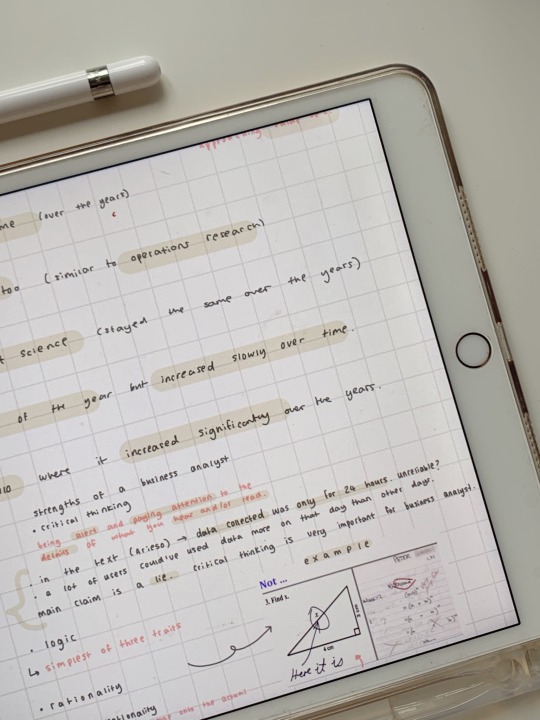 me (over the years)
too (similar to operations research)
t science (stayed the same over the years)
of the year but increased slowly over time.
where it increased significantly over the years.
strengths of a business analyst
• critical thinking
being alert and paying attention to the
details of what you hear and/or read.
• in the text (Arieso) → data collected was only for 24 hours. unreliable?
• a lot of users could've used data more on that day than other days.
main claim is a lie. critical thinking is very important for business analyst.
example
Not ...
3. Find x.
x
3 cm
4 cm
Here it is
• logic
↳ simplest of three traits
• rationality